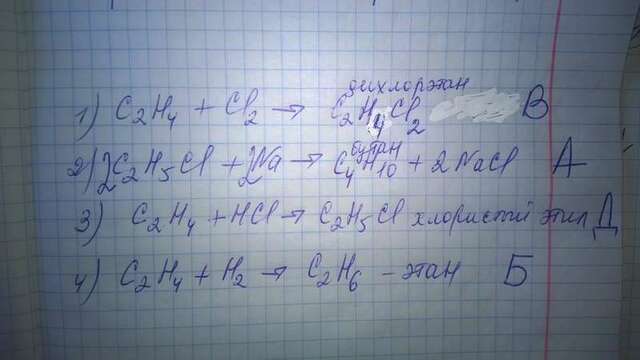 1) C₂H₄ + Cl₂ → C₂H₄Cl₂ дихлорэтан В
2) 2C₂H₅Cl + 2Na → C₄H₁₀ бутан + 2NaCl А
3) C₂H₄ + HCl → C₂H₅Cl хлористый этил Д
4) C₂H₄ + H₂ → C₂H₆ – этан Б